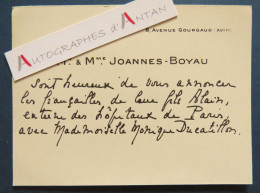 AUTOGRAPHES D'ANTAN
8, AVENUE GOURGAUD (XVIIe)
& Mme JOANNES-BOYAU
sont heureux de vous annoncer
les fiançailles de leur fils Alain,
externe des hôpitaux de Paris,
avec Mademoiselle Monique Ducatillon.